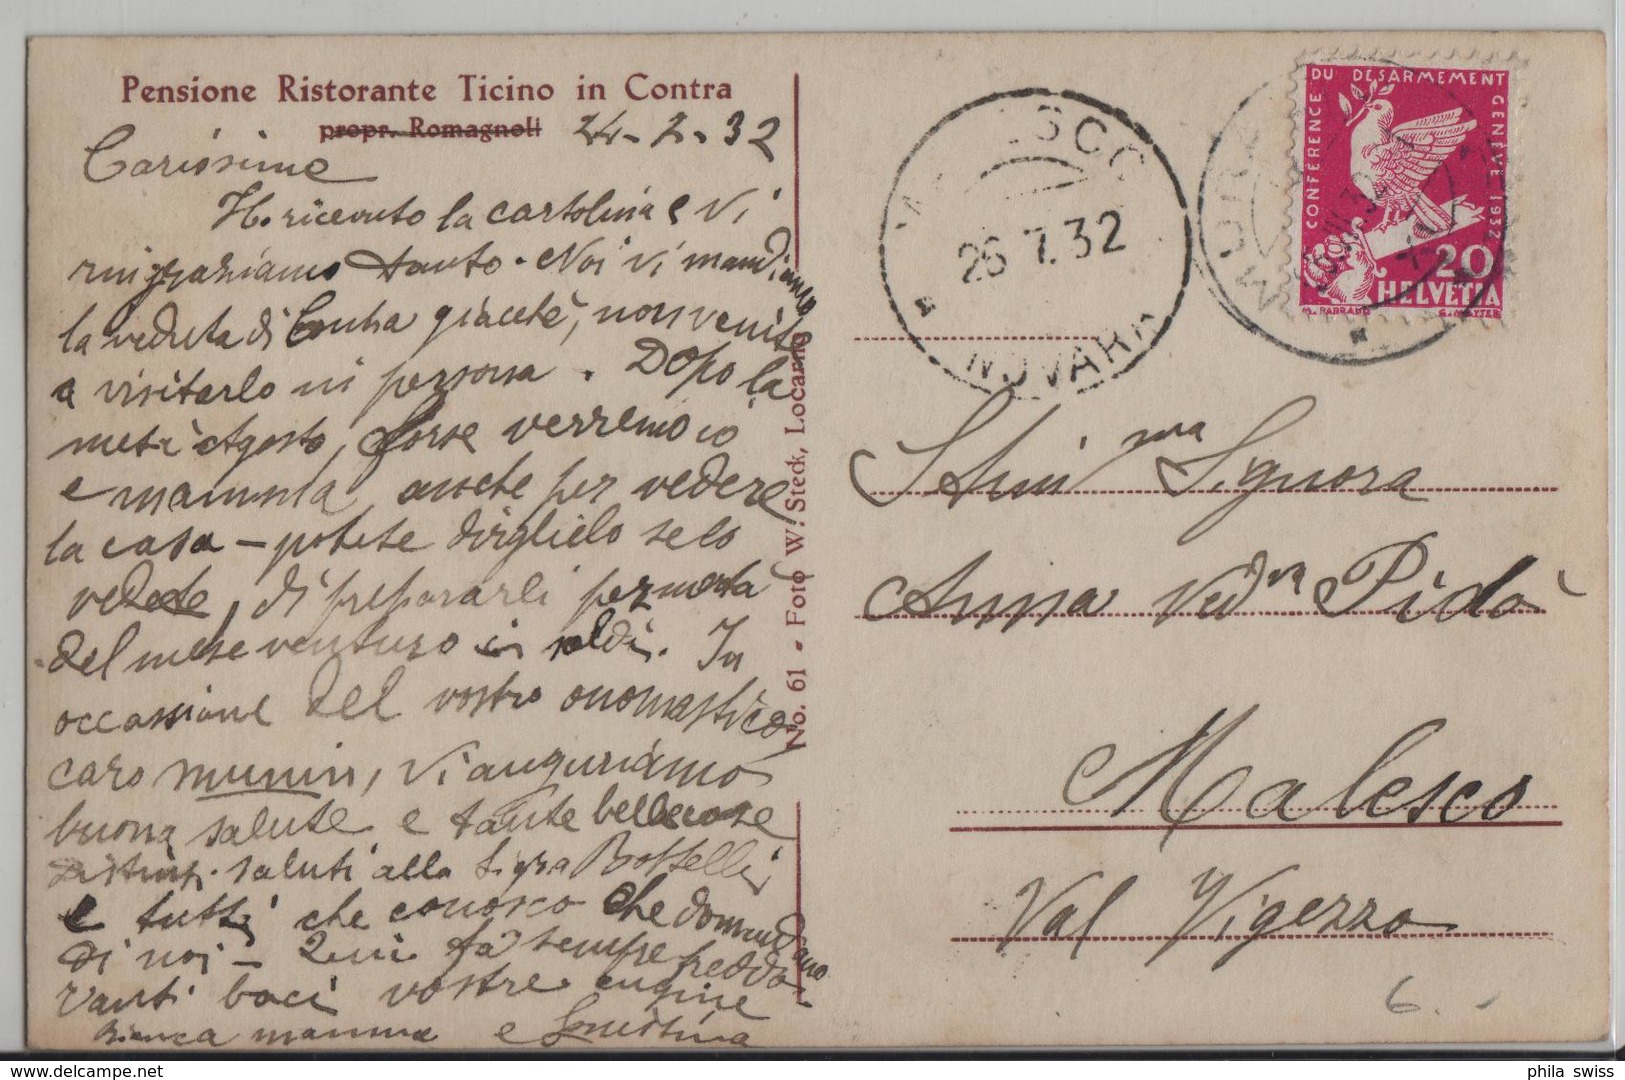 Pensione Ristorante Ticino in Contra
propr. Romagnoli 24-7-32
Carissime
Ho ricevuto la cartolina e vi
ringraziamo tanto. Noi vi mandiamo
la veduta di Contra giacchè, non venite
a visitarlo in persona. Dopo la
metà Agosto, forse verremo io
e mamma anche per vedere
la casa - potete dirglielo se lo
vedete, di prepararli per metà
del mese venturo in soldi. In
occassione del vostro onomastico
caro munin, vi auguriamo
buona salute e tante belle cose
Distinti saluti alla Sigra Bottelli
e tutti che conosco che domandano
di noi - Qui fà sempre freddo
Tanti baci vostre cugine
Bianca mamma e Giustina
No. 61 - Foto W. Steck, Locarno
MALESCO
26.7.32
NOVARA
CONFERENCE DU DESARMEMENT GENÈVE 1932
20
HELVETIA
Stim ma Signora
Anna Ved va Pidò
Malesco
Val Vigezzo
6.-
phila swiss